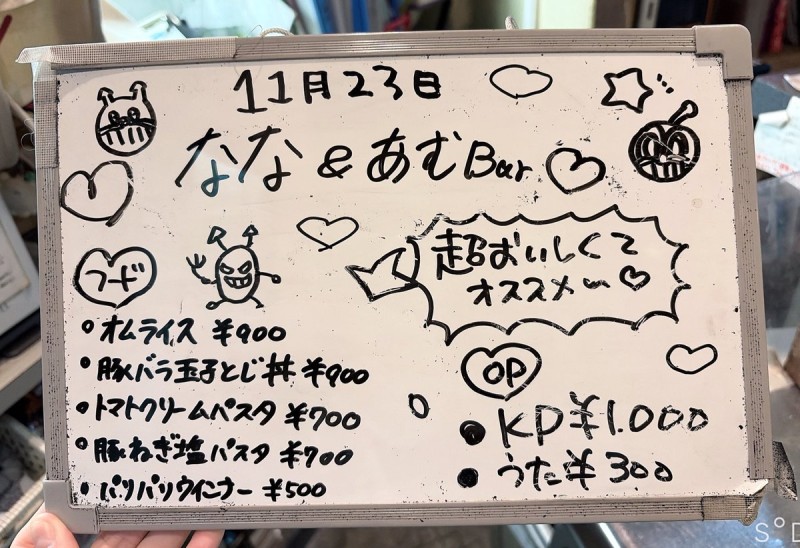 11月23日
なな & あむ Bar
フード
超おいしくて
オススメ〜♡
・オムライス ¥900
・豚バラ玉子とじ丼 ¥900
・トマトクリームパスタ ¥700
・豚ねぎ塩パスタ ¥700
・パリパリウインナー ¥500
OP
・KP ¥1.000
・うた ¥300